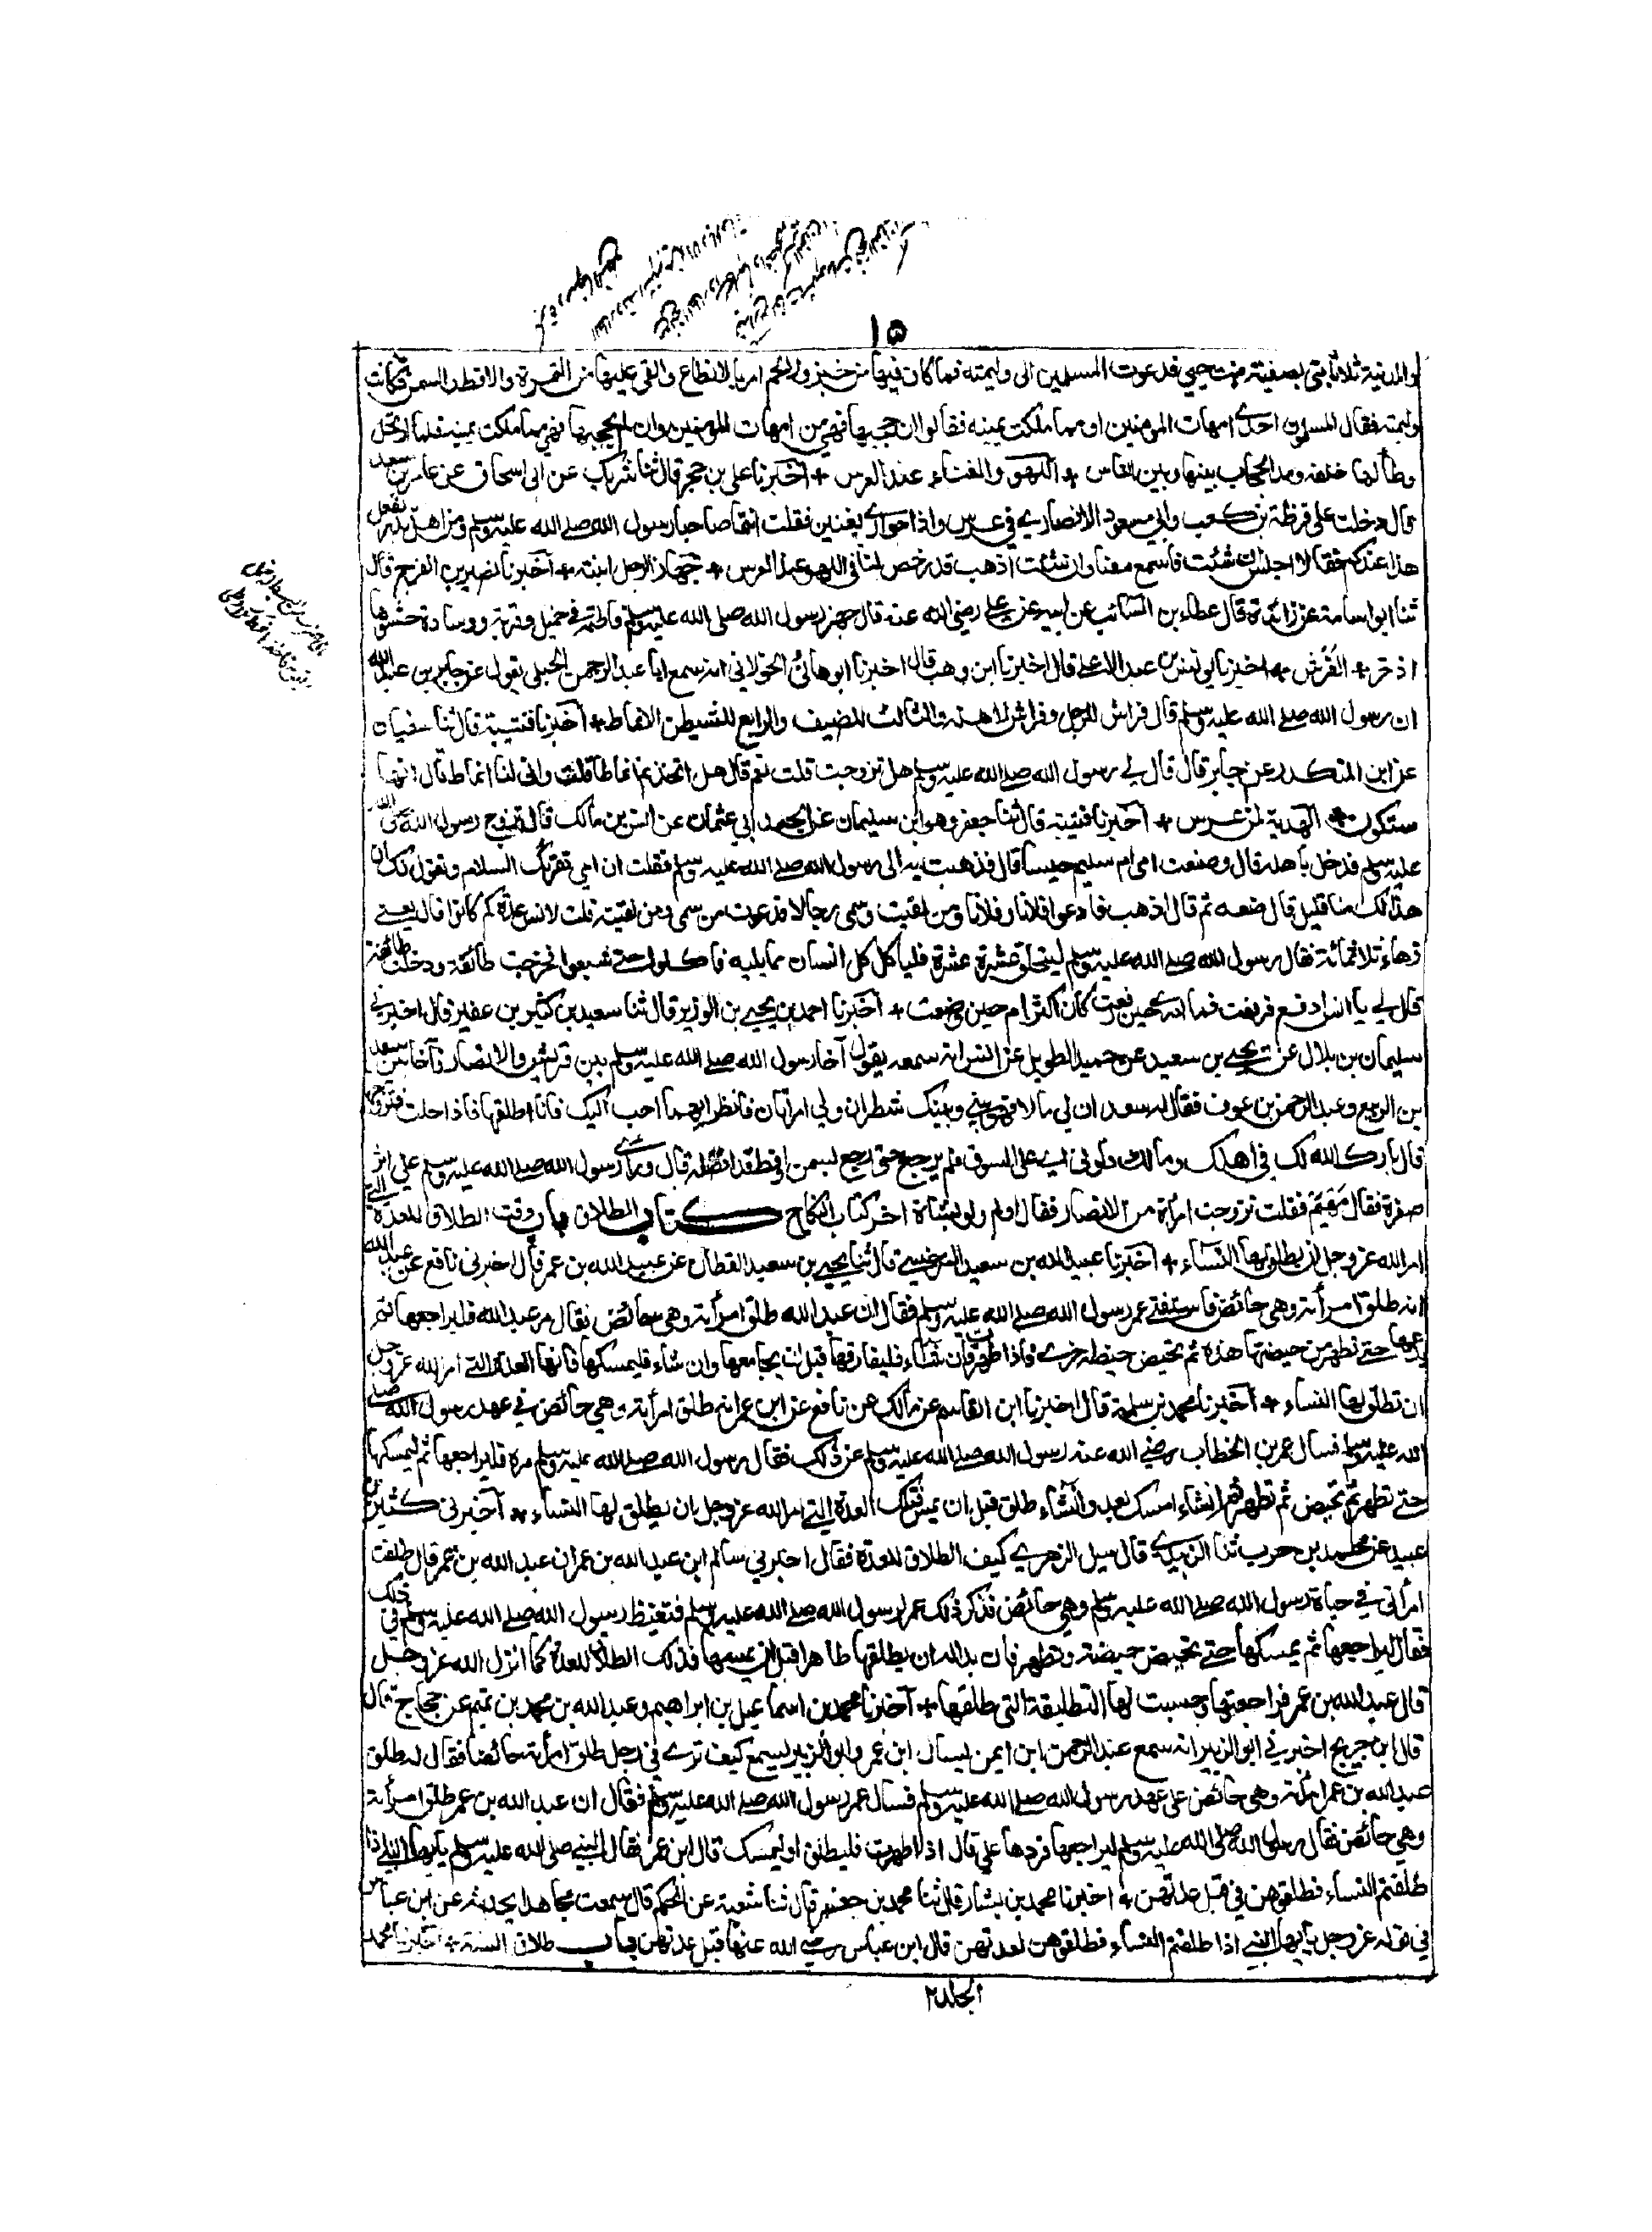 ١٥
والمدينة ثلاثا يبنى بصفية بنت حيي فدعوت المسلمين الى وليمته فما كان فيها من خبز ولا لحم امر بالانطاع والقى عليها من التمرة والاقط والسمن فكانت
وليمته فقال المسلمون احدى امهات المومنين او مما ملكت يمينه فقالوا ان حجبها فهي من امهات المومنين وان لم يحجبها فهي مما ملكت يمينه فلما ارتحل
وطألها خلفه ومد الحجاب بينها وبين الناس + اللهو والغناء عند العرس + اخبرنا علي بن حجر قال ثنا شريك عن ابى اسحاق عن عامر بن سعد
قال دخلت على قرظة بن كعب وابي مسعود الانصاري في عرس واذا جواري يغنين فقلت انتما صاحبا رسول الله صلى الله عليه وسلم ومن اهل بدر يفعل
هذا عندكم فقالا اجلس ان شئت فاسمع معنا وان شئت اذهب قد رخص لنا في اللهو عند العرس + جهاز الرجل ابنته + اخبرنا نصير بن الفرج قال
ثنا ابو اسامة عن زائدة قال عطاء بن السائب عن ابيه عن علي رضي الله عنه قال جهز رسول الله صلى الله عليه وسلم فاطمة في خميل وقربة ووسادة حشوها
اذخر + الفرش + اخبرنا يونس بن عبد الاعلى قال اخبرنا ابن وهب قال اخبرنا ابو هانئ الخولاني انه سمع ابا عبد الرحمن الحبلي يقول عن جابر بن عبد الله
ان رسول الله صلى الله عليه وسلم قال فراش للرجل وفراش لاهله والثالث للضيف والرابع للشيطن الانماط + اخبرنا قتيبة قال ثنا سفيان
عن ابن المنكدر عن جابر قال قال لي رسول الله صلى الله عليه وسلم هل تزوجت قلت نعم قال هل اتخذتم انماطا قلت وانى لنا انماط قال انها
ستكون + الهدية لمن عرس + اخبرنا قتيبة قال ثنا جعفر وهو ابن سليمان عن الجعد ابي عثمان عن انس بن مالك قال تزوج رسول الله صلى الله
عليه وسلم فدخل باهله قال وصنعت امي ام سليم حيسا قال فذهبت به الى رسول الله صلى الله عليه وسلم فقلت ان امي تقرئك السلام وتقول لك ان
هذا لك منا قليل قال ضعه ثم قال اذهب فادعو افلانا وفلانا ومن لقيت وسمى رجالا فدعوت من سمى ومن لقيته قلت لانس عدة كم كانوا قال يعني
زهاء ثلاثمائة فقال رسول الله صلى الله عليه وسلم ليتحلق عشرة عشرة فلياكل كل انسان مما يليه فاكلوا حتى شبعوا فخرجت طائفة ودخلت طائفة
قال لي يا انس ارفع فرفعت فما ادري حين رفعت كان اكثر ام حين وضعت + اخبرنا احمد بن يحيى بن الوزير قال ثنا سعيد بن كثير بن عفير قال اخبرني
سليمان بن بلال عن يحيى بن سعيد عن حميد الطويل عن انس انه سمعه يقول آخا رسول الله صلى الله عليه وسلم بين قريش والانصار فآخا بين سعد
بن الربيع وعبد الرحمن بن عوف فقال له سعد ان لي مالا فهو بيني وبينك شطران ولي امراتان فانظر ايهما احب اليك فانا اطلقها فاذا حلت فتزوجها
قال بارك الله لك في اهلك ومالك دلوني اي على السوق فلم يرجع حتى رجع بسمن واقط قد افضله قال وراى رسول الله صلى الله عليه وسلم علي اثر
صفرة فقال مهيم فقلت تزوجت امرأة من الانصار فقال اولم ولو بشاة اخر كتاب النكاح كتاب الطلاق باب وقت الطلاق للعدة التي
امر الله عز وجل ان يطلق لها النساء + اخبرنا عبيد الله بن سعيد السرخسي قال ثنا يحيى بن سعيد القطان عن عبيد الله بن عمر قال اخبرني نافع عن عبد الله
انه طلق امرأته وهي حائض فاستفتى عمر رسول الله صلى الله عليه وسلم فقال ان عبد الله طلق امرأته وهي حائض فقال مر عبد الله فليراجعها ثم
يدعها حتى تطهر من حيضتها هذه ثم تحيض حيضة اخرى فاذا طهرت فان شاء فليفارقها قبل ان يجامعها وان شاء فليمسكها فانها العدة التي امر الله عز وجل
ان تطلق لها النساء + اخبرنا محمد بن سلمة قال اخبرنا ابن القاسم عن مالك عن نافع عن ابن عمر انه طلق امرأته وهي حائض في عهد رسول الله صلى
الله عليه وسلم فسال عمر بن الخطاب رضي الله عنه رسول الله صلى الله عليه وسلم عن ذلك فقال رسول الله صلى الله عليه وسلم مره فليراجعها ثم ليمسكها
حتى تطهر ثم تحيض ثم تطهر ثم ان شاء امسك بعد وان شاء طلق قبل ان يمس فتلك العدة التي امر الله عز وجل بان يطلق لها النساء + اخبرني كثير بن
عبيد عن محمد بن حرب ثنا الزبيدي قال سئل الزهري كيف الطلاق للعدة فقال اخبرني سالم ابن عبد الله بن عمر ان عبد الله بن عمر قال طلقت
امرأتي في حياة رسول الله صلى الله عليه وسلم وهي حائض فذكر ذلك عمر لرسول الله صلى الله عليه وسلم فتغيظ رسول الله صلى الله عليه وسلم في ذلك
فقال ليراجعها ثم يمسكها حتى تحيض حيضة وتطهر فان بدا له ان يطلقها طاهرا قبل ان يمسها فذلك الطلاق للعدة كما انزل الله عز وجل
قال عبد الله بن عمر فراجعتها وحسبت لها التطليقة التي طلقتها + اخبرنا محمد بن اسماعيل بن ابراهيم وعبد الله بن محمد بن تميم عن حجاج قال
قال ابن جريج اخبرني ابو الزبير انه سمع عبد الرحمن ابن ايمن يسال ابن عمر وابو الزبير يسمع كيف ترى في رجل طلق امرأته حائضا فقال له طلق
عبد الله بن عمر امرأته وهي حائض على عهد رسول الله صلى الله عليه وسلم فسال عمر رسول الله صلى الله عليه وسلم فقال ان عبد الله بن عمر طلق امرأته
وهي حائض فقال رسول الله صلى الله عليه وسلم ليراجعها فردها علي قال اذا طهرت فليطلق او ليمسك قال ابن عمر فقال النبي صلى الله عليه وسلم يايها النبي اذا
طلقتم النساء فطلقوهن في قبل عدتهن + اخبرنا محمد بن بشار قال ثنا محمد بن جعفر قال ثنا شعبة عن الحكم قال سمعت مجاهدا يحدثه عن ابن عباس
في قوله عز وجل يايها النبي اذا طلقتم النساء فطلقوهن لعدتهن قال ابن عباس رضي الله عنها قبل عدتهن باب طلاق السنة + اخبرنا محمد
الجلد٢